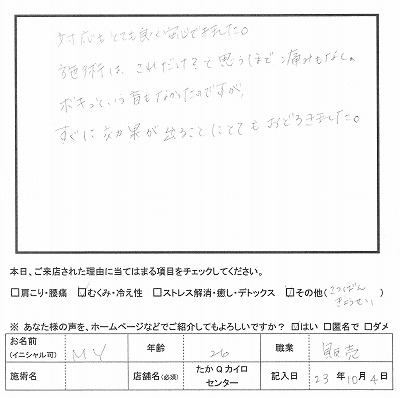 対応もとても良く安心できました。
施術は、これだけ？と思うほど痛みもなく。
ボキっという音もなかったのですが、
すぐに効果が出ることにとてもおどろきました。
本日、ご来店された理由に当てはまる項目をチェックしてください。
□肩こり・腰痛 ☑むくみ・冷え性 □ストレス解消・癒し・デトックス ☑その他(こつばんきょうせい)
※ あなた様の声を、ホームページなどでご紹介してもよろしいですか？ ☑はい □匿名で □ダメ
お名前(イニシャル可) MY 年齢 26 職業 販売
施術名 店舗名(必須) たかQカイロセンター 記入日 23年10月4日